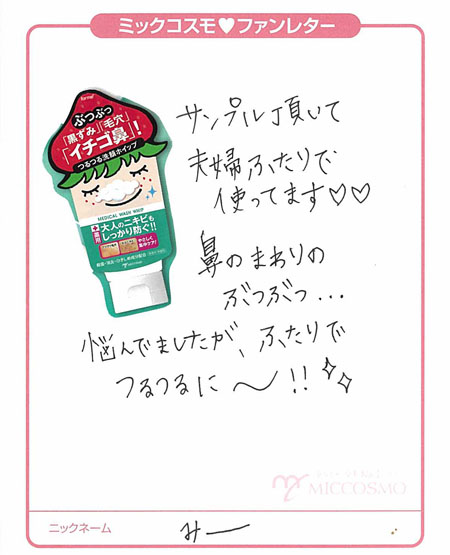 ミックコスモ♥ファンレター
ぶつぶつ
「黒ずみ」「毛穴」
「イチゴ鼻」!
つるつる洗顔ホイップ
MEDICAL WASH WHIP
薬用
大人のニキビも
しっかり防ぐ!!
サンプル頂いて
夫婦ふたりで
使ってます♡♡
鼻のまわりの
ぶつぶつ...
悩んでましたが、ふたりで
つるつるに〜!!
MICCOSMO
ニックネーム
みー